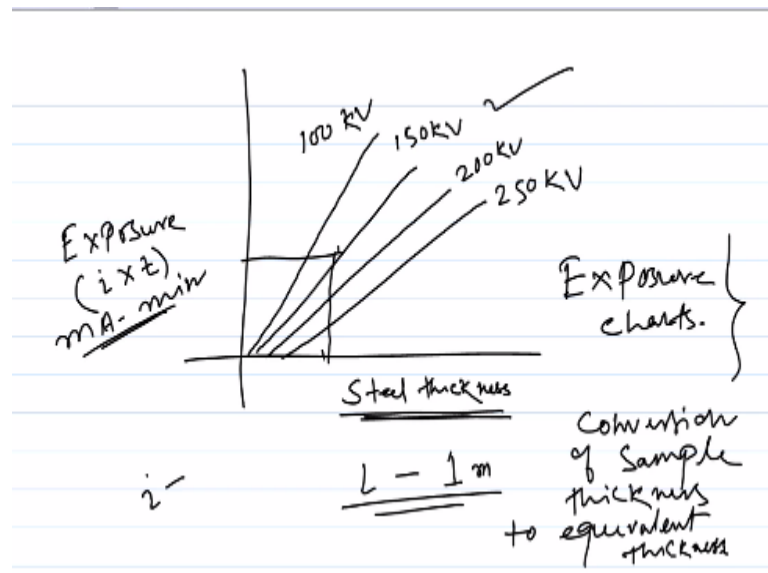 100 KV
150KV
200KV
250KV
Exposure
(i x t)
mA-min
Exposure
charts.
Steel thickness
i -
L - 1m
Convertion
of Sample
thickness
to equivalent
thickness